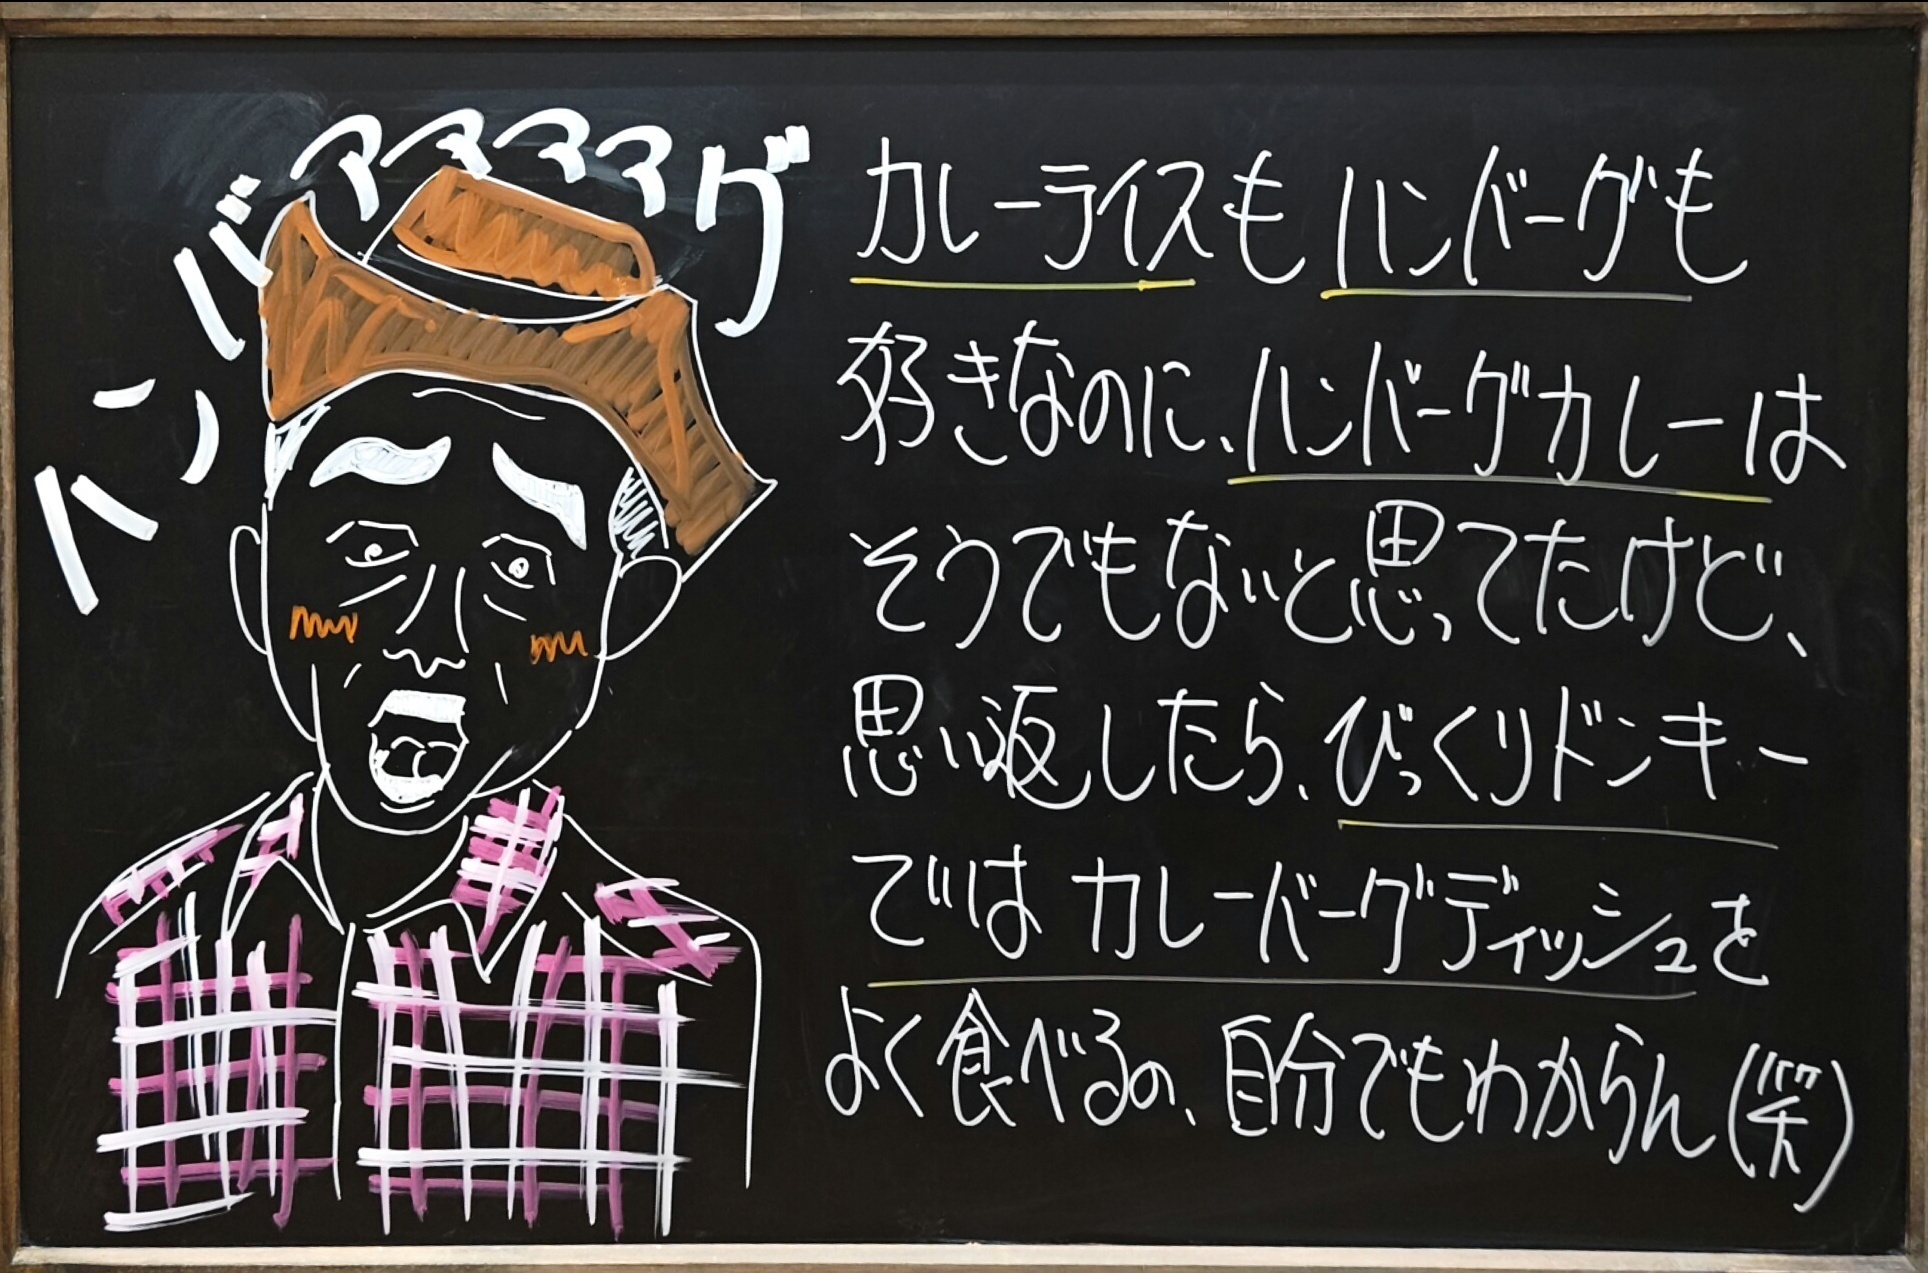 ハンバアアアアグ
カレーライスもハンバーグも
好きなのに、ハンバーグカレーは
そうでもないと思ってたけど、
思い返したら、びっくりドンキー
ではカレーバーグディッシュを
よく食べるの、自分でもわからん(笑)